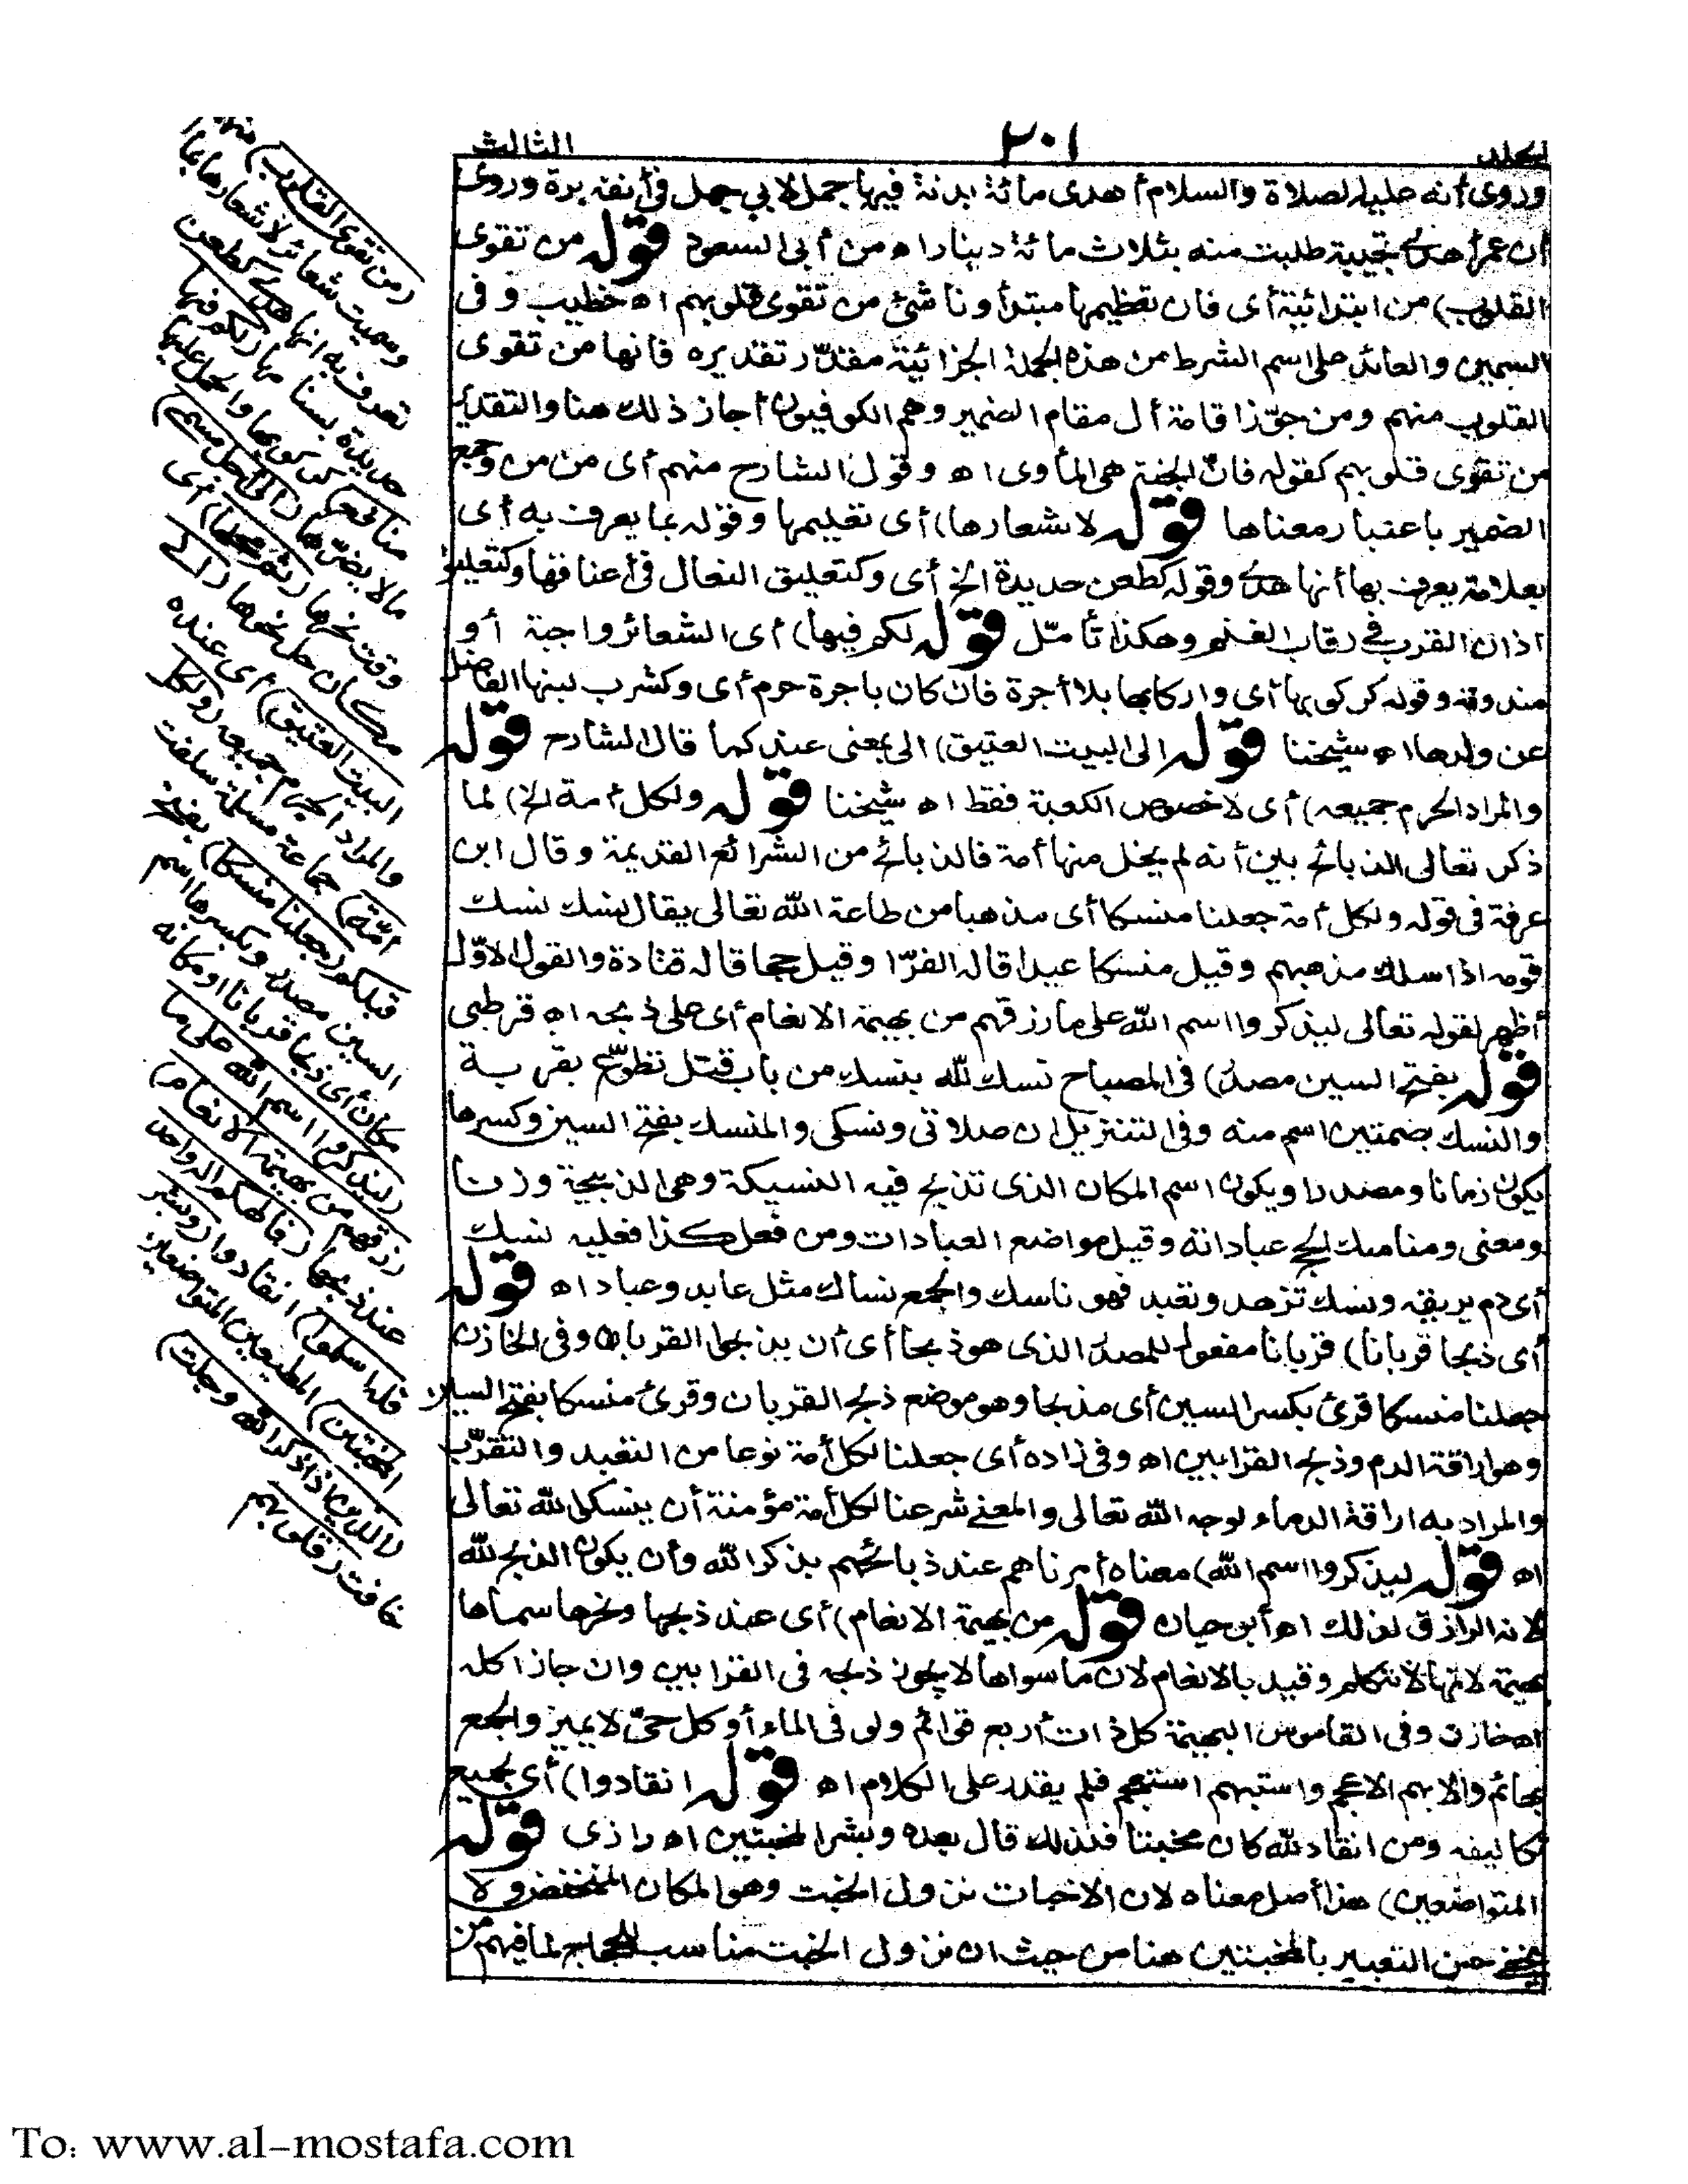 المجلد
٢٠١
الثالث
وروى أنه عليه الصلاة والسلام أهدى مائة بدنة فيها جمل لابي جهل في أنفه برة وروى
أن عمر أهدى نجيبة طلبت منه بثلاث مائة دينار اه من أبى السعود قوله من تقوى
القلوب) من ابتدائية أى فان تعظيمها مبتدأ وناشئ من تقوى قلوبهم اه خطيب وفى
السمين والعائد على اسم الشرط من هذه الجملة الجزائية مقدّر تقديره فانها من تقوى
القلوب منهم ومن جوّز اقامة أل مقام الضمير وهم الكوفيون أجاز ذلك هنا والتقدير
من تقوى قلوبهم كقوله فانّ الجنة هى المأوى اه وقول الشارح منهم أى من من وجمع
الضمير باعتبار معناها قوله لاشعارها) أى تعليمها وقوله بما يعرف به أى
بعلامة يعرف بها أنها هدى وقوله كطعن حديدة الخ أى وكتعليق النعال فى أعناقها وكتعليق
اذان القرب فى رقاب الغنم وهكذا تأمّل قوله لكم فيها) أى الشعائر واجبة أو
مندوبة وقوله كركوبها أى واركابها بلا أجرة فان كان باجرة حرم أى وكشرب لبنها الفاضل
عن ولدها اه شيخنا قوله الى البيت العتيق) الى بمعنى عند كما قال الشارح قوله
والمراد الحرم جميعه) أى لا خصوص الكعبة فقط اه شيخنا قوله ولكل أمة الخ) لما
ذكر تعالى الذبائح بين أنه لم يخل منها أمة فالذبائح من الشرائع القديمة وقال ابن
عرفة فى قوله ولكل أمة جعلنا منسكا أى مذهبا من طاعة الله تعالى يقال نسك نسك
قومه اذا سلك مذهبهم وقيل منسكا عيدا قاله الفرّا وقيل حجا قاله قتادة والقول الاوّل
أظهر لقوله تعالى ليذكروا اسم الله على ما رزقهم من بهيمة الانعام أى على ذبحه اه قرطبى
قوله بفتح السين مصدر) فى المصباح نسك لله ينسك من باب قتل تطوّع بقربة
والنسك بضمتين اسم منه وفى التنزيل ان صلاتى ونسكى والمنسك بفتح السين وكسرها
يكون زمانا ومصدرا ويكون اسم المكان الذى تذبح فيه النسيكة وهى الذبيحة وزنا
ومعنى ومناسك الحج عباداته وقيل مواضع العبادات ومن فعل كذا فعليه نسك
أى دم يريقه ونسك تزهد وتعبد فهو ناسك والجمع نساك مثل عابد وعباد اه قوله
أى ذبحا قربانا) قربانا مفعول للمصدر الذى هو ذبحا أى أن يذبحوا القربان وفى الخازن
جعلنا منسكا قرئ بكسر السين أى مذبحا وهو موضع ذبح القربان وقرئ منسكا بفتح السين
وهو اراقة الدم وذبح القرابين اه وفى زاده أى جعلنا لكل أمة نوعا من التعبد والتقرّب
والمراد به اراقة الدماء لوجه الله تعالى والمعنى شرعنا لكل أمة مؤمنة أن ينسكوا لله تعالى
اه قوله ليذكروا اسم الله) معناه أمرناهم عند ذبائحهم بذكر الله وأن يكون الذبح لله
لانه الرازق لذلك اه أبن حيان قوله من بهيمة الانعام) أى عند ذبحها ونحرها سماها
بهيمة لانها لا تتكلم وقيد بالانعام لان ما سواها لا يجوز ذبحه فى القرابين وان جاز اكله
اه خازن وفى القاموس البهيمة كل ذات أربع قوائم ولو فى الماء أو كل حىّ لا يميز والجمع
بهائم والابهم الاعجم واستبهم استعجم فلم يقدر على الكلام اه قوله انقادوا) أى بجميع
تكاليفه ومن انقاد لله كان مخبتا فلذلك قال بعده وبشر المخبتين اه رازى قوله
المتواضعين) هذا أصل معناه لان الاخبات نزول الخبت وهو المكان المنخفض ولا
يخفى حسن التعبير بالمخبتين هنا من حيث ان نزول الخبت مناسب للحجاج لما فيهم من
(من تقوى القلوب) منهم
وسميت شعائر لاشعارها بما
تعرف به انها هدى كطعن
حديدة بسنامها (لكم فيها
منافع) كركوبها والحمل عليها
مالا يضرّها (الى أجل مسمى)
وقت نحرها (ثم محلها) أى
مكان حل نحرها (الى
البيت العتيق) أى عنده
والمراد الحرم جميعه (ولكل
أمّة) جماعة مسلمة سلفت
قبلكم (جعلنا منسكا) بفتح
السين مصدر وبكسرها اسم
مكان أى ذبحا قربانا او مكانه
(ليذكروا اسم الله على ما
رزقهم من بهيمة الانعام)
عند ذبحها (فالهكم اله واحد
فله اسلموا) انقادوا (وبشر
المخبتين) المطيعين المتواضعين
(الذين اذا ذكر الله وجلت)
خافت (قلوبهم
To: www.al-mostafa.com